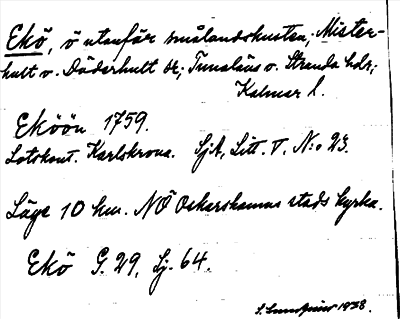 Ekö, ö utanför smålandskusten, Mister-
hult o. Döderhult sr; Tunaläns o. Stranda hdr;
Kalmar l.
Eköön 1759.
Lotskont. Karlskrona. SjA, Litt. V. N:o 23.
Läge 10 km. NÖ Oskarshamns stads kyrka.
Ekö G. 29, Sj. 64.
1938.